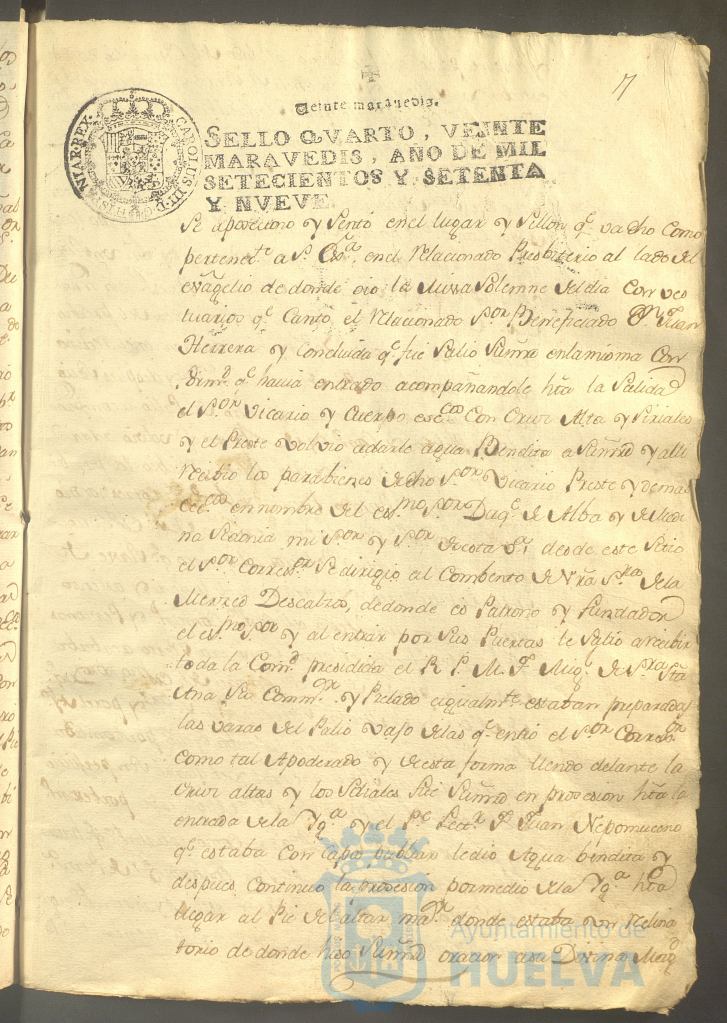 17
Veinte maravedis.
CAROLUS III D G HISPANIAR REX
SELLO QVARTO, VEINTE
MARAVEDIS, AÑO DE MIL
SETECIENTOS Y SETENTA
Y NVEVE.
Se aposeciono y Sento en el lugar y Sillon q.e va dho como
pertenec.te a S. Ex.a, en el relacionado Presbiterio al lado del
evangelio de donde oio la Missa Solemne del dia con ves
tuarios q.e Canto el relacionado S.or Beneficiado D.n Juan
Herrera y Concluida q.e fue Salio Sumrd en la misma Con
q.e havia entrado acompañandole hta la Salida
el S.or Vicario y Cuerpo ecc.co Con Cruz Alta y Siriales
y el Preste volvio a darle agua Bendita a Sumrd y alli
recibio los parabienes de dho S.or Vicario Preste y demas
ecc.cos en nombre del ex.mo S.or Duq.e de Alba y de Medi
na Sidonia mi S.or y S.or de esta desde este Sitio
el S.or Correx.or Se dirigio al Combento de Nra S.ra de la
Merzed Descalzos, de donde es Patrono y Fundador
el ex.mo S.or y al entrar por Sus Puertas le Salio a recibir
toda la Com.d presidida el R. P. M. F. Mig.l de S.ra Sta
Ana Su Comm.or y Prelado e igualm.te estaban preparadas
las varas del Palio vajo de las q.e entro el S.or Correx.or
Como tal Apoderado y de esta forma llendo delante la
Cruz altas y los Siriales fue Sumrd en prosesion hta la
entrada de la Yg.a y el P.e Lect.r F. Juan Nepomuceno
q.e estaba con Capa pluvial le dio Agua bindita y
despues Continuo la prosesion por medio de la Yg.a hta
llegar al Pie del altar ma.or donde estaba un reclina
torio de donde hiso Sumrd oracion a su Divina Mag.d
Ayuntamiento de
HUELVA